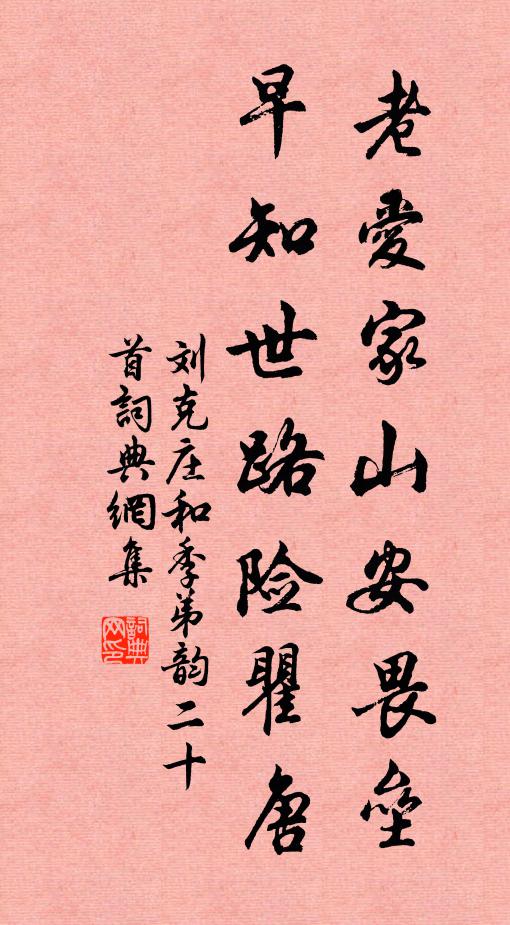 老爱家山安畏垒
早知世路险瞿唐
刘克庄和季弟韵二十
首詞典網集
詞典网印